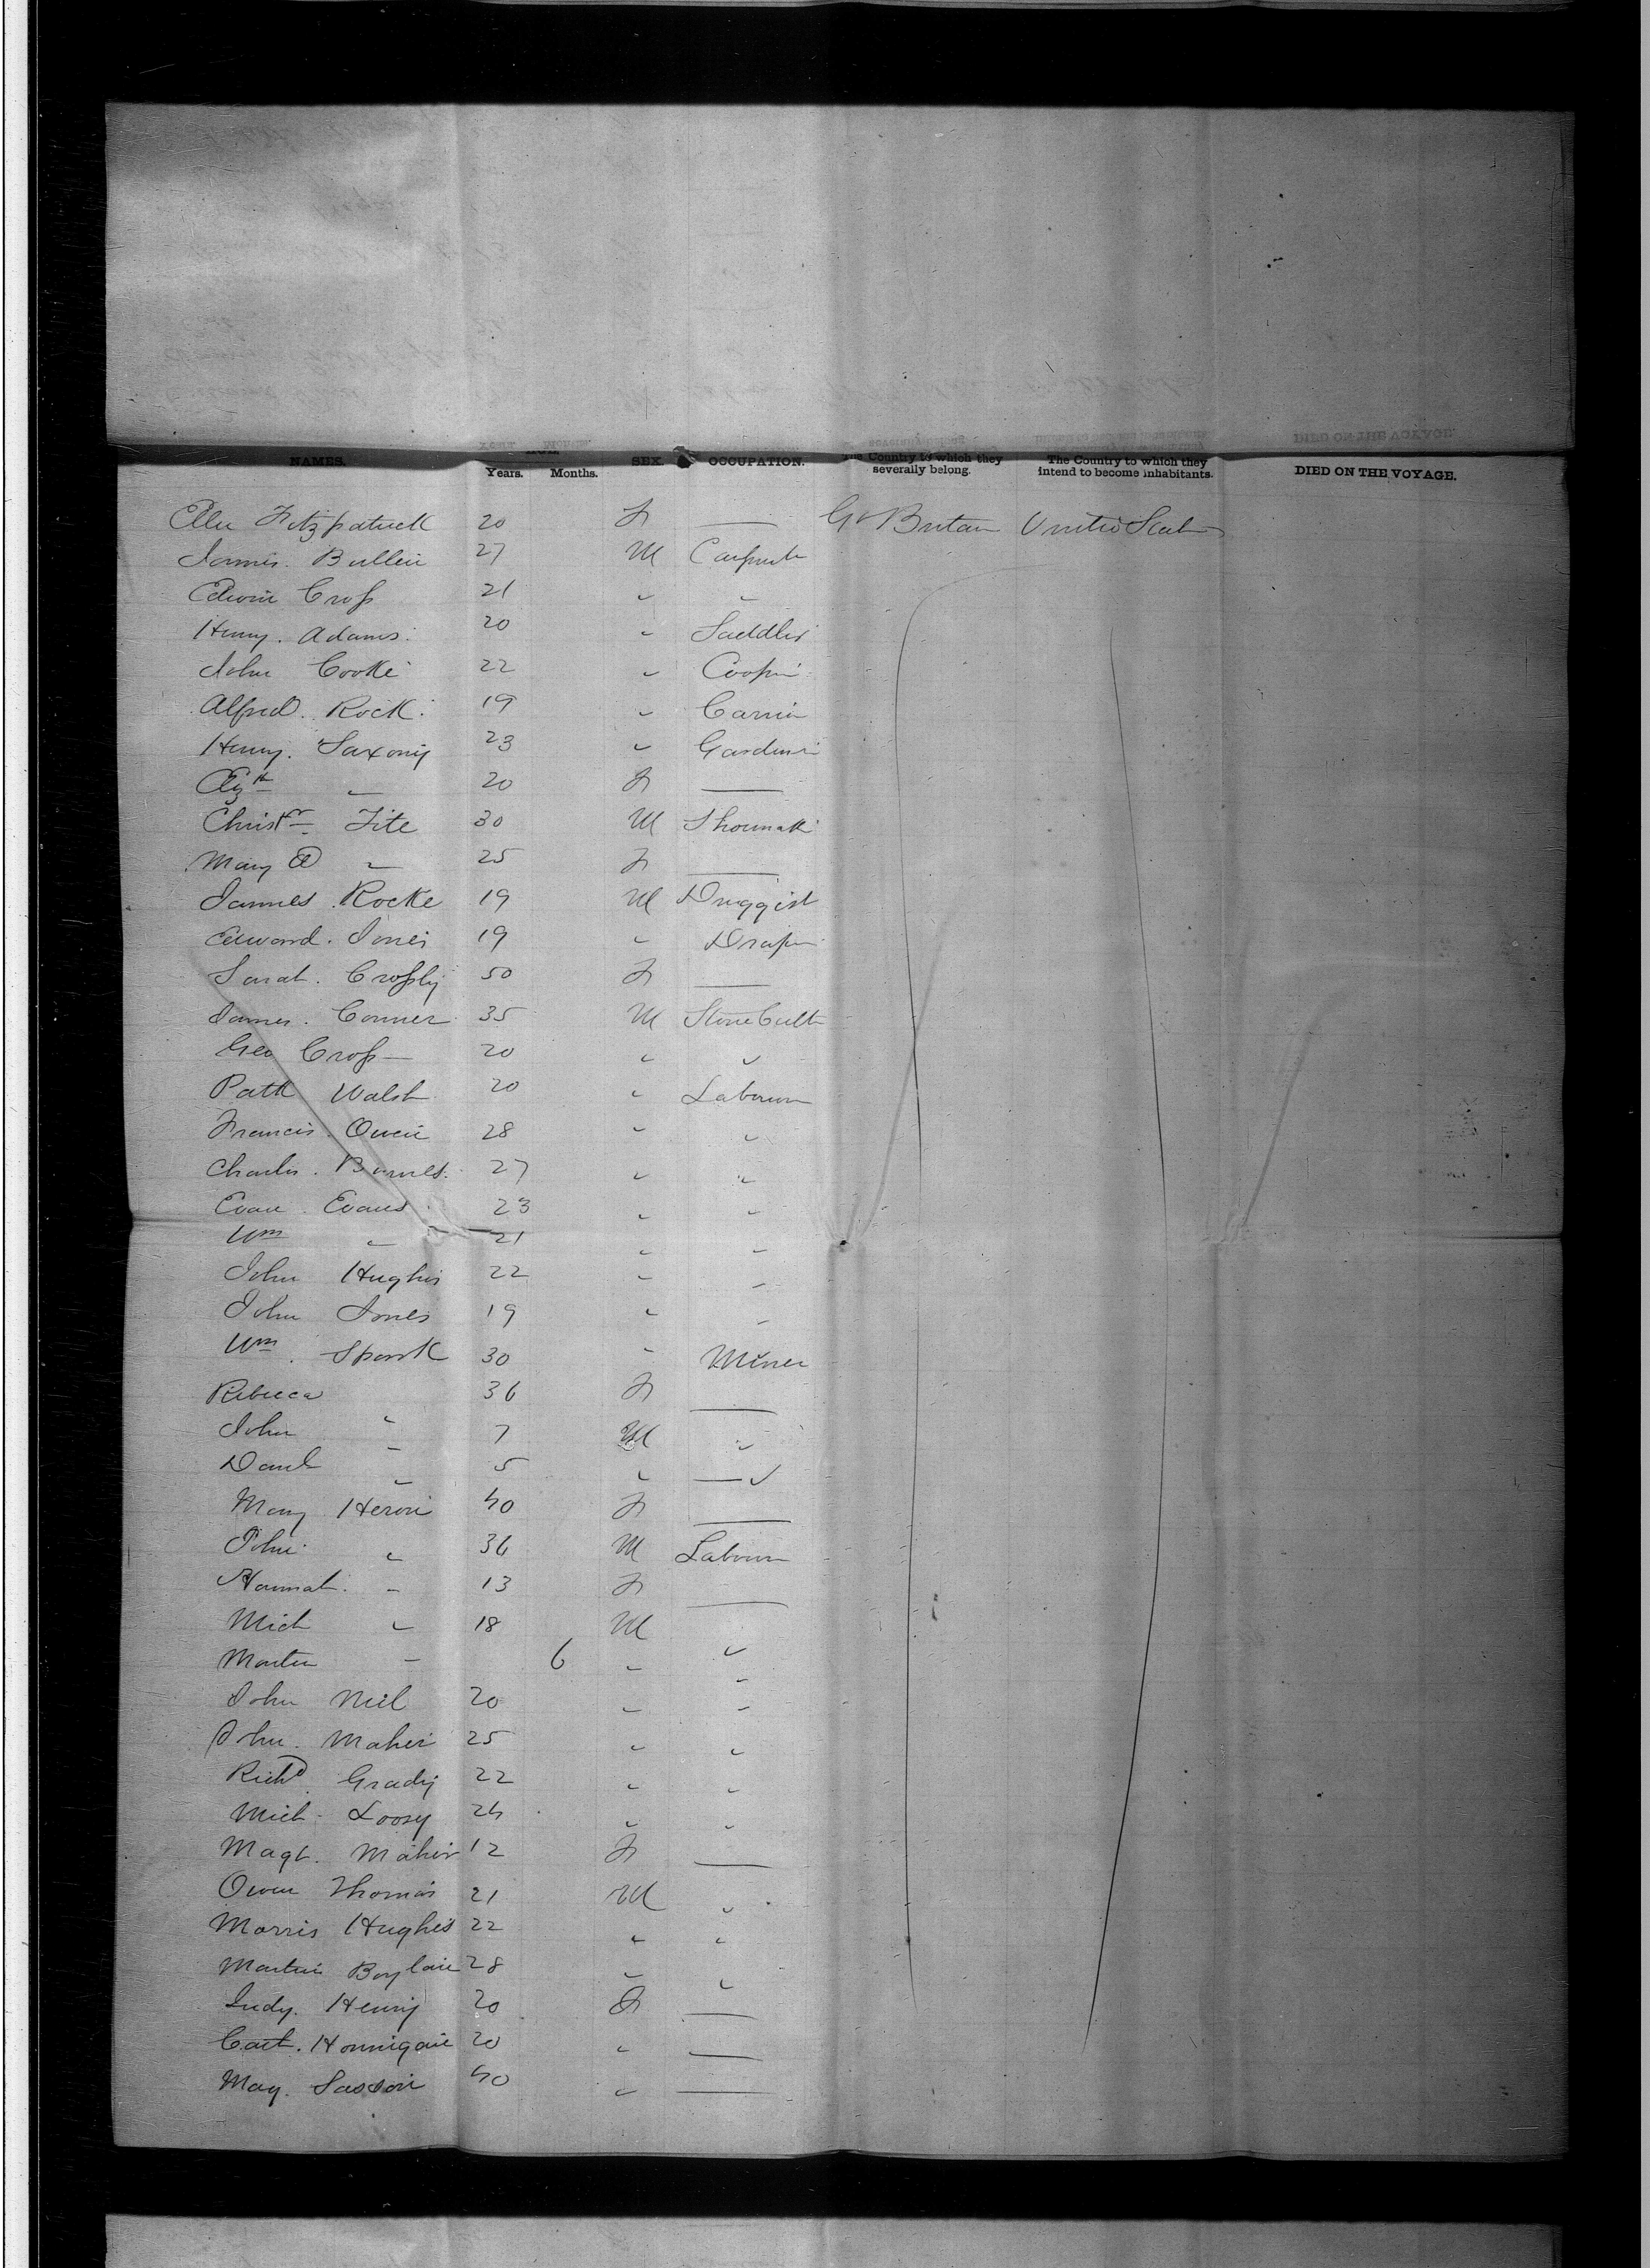 NAMES. AGE. Years. Months. SEX. OCCUPATION. The Country to which they severally belong. The Country to which they intend to become inhabitants. DIED ON THE VOYAGE.
Fitzpatrick 20 F — Gt Britain United States
James. Bullen 27 M Carpenter
Edwin Cross 21 " "
Henry. Adams. 20 " Saddler
John Cooke 22 " Cooper
Alfred. Rock. 19 "
Henry. Saxony 23 " Gardener
Elizth " 20 F —
Christr Tite 30 M Shoemaker
Mary A " 25 F —
James Rocke 19 M Druggist
Edward. Jones 19 " Draper
Sarah. Crossly 50 F —
James. Conner 35 M Stone Cutter
Geo Cross 20 " "
Patk Walsh 20 " Labourer
Francis. Owen 28 " "
Charles. Barnes. 27 " "
Evan Evans 23 " "
Wm " 21 " "
John Hughes 22 " "
John Jones 19 " "
Wm. Spark 30 " Miner
Rebecca " 36 F —
John " 7 M "
Danl " 5 " — "
Mary Heron 40 F —
John " 36 M Labourer
Hannah. " 13 F —
Mich " 18 M "
Martin " 6 " "
John Neil 20 " "
John. Maher 25 " "
Richd. Grady 22 " "
Mich. Loosy 24 " "
Magt. Maher 12 F —
Owen Thomas 21 M "
Morris Hughes 22 " "
Martin Boylan 28 " "
Judy. Henry 20 F —
Cath. Hannigan 20 " —
May. 40 " —